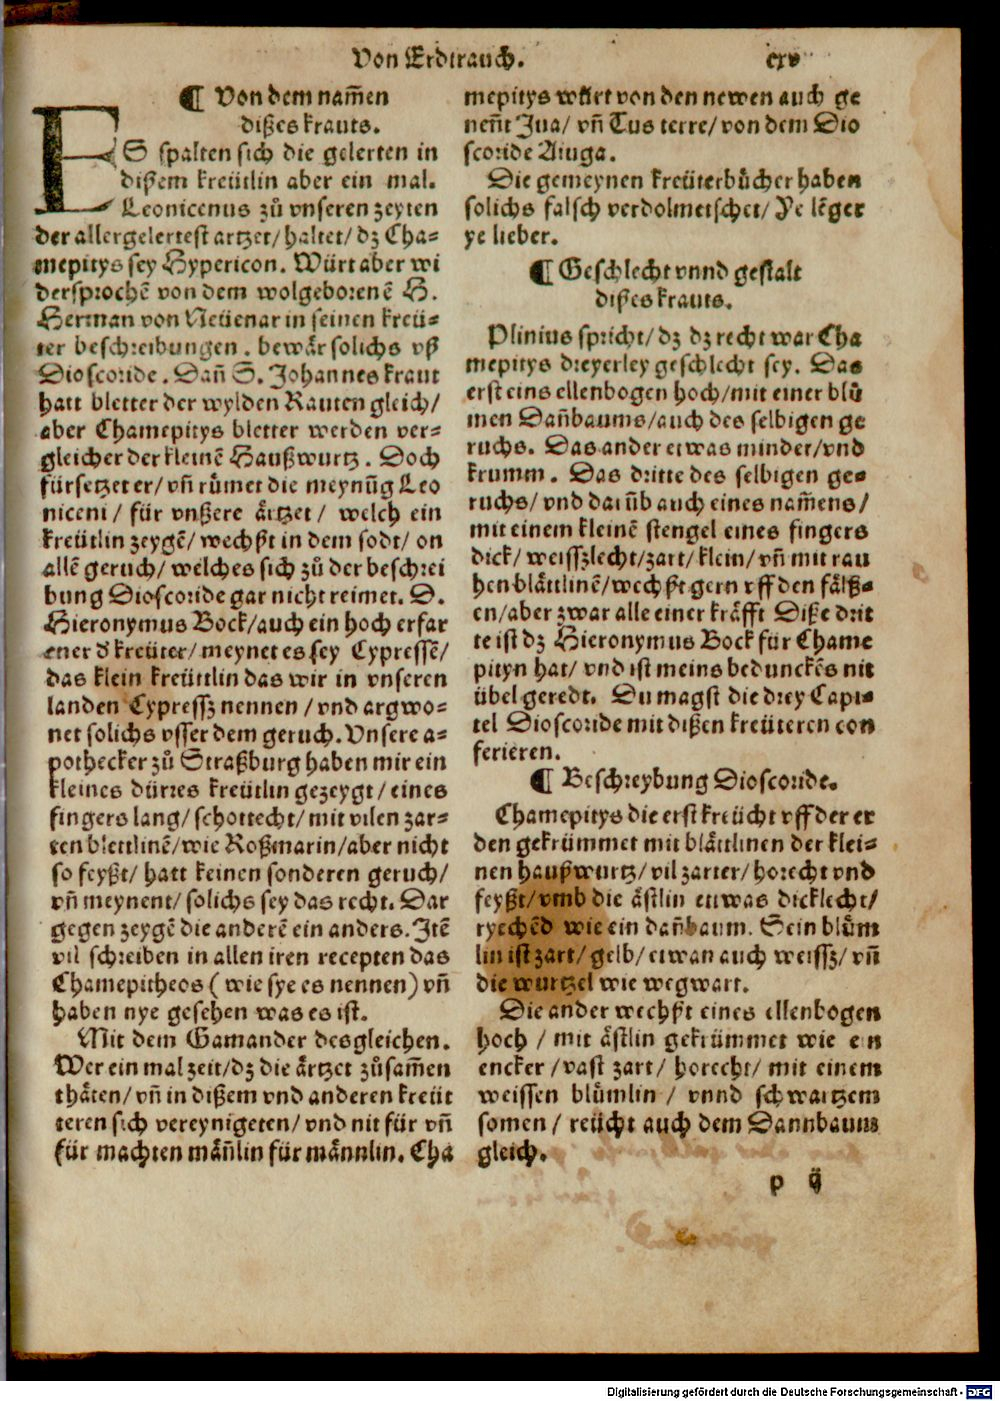 Von Erdtrauch.
cxv
¶ Von dem nam̃en
dißes krauts.
ES spalten sich die gelerten in
dißem kreütlin aber ein mal.
Leonicenus zů vnseren zeyten
der allergelertest artzet/ haltet/ dz Cha⸗
mepitys sey Hypericon. Würt aber wi
dersprochẽ von dem wolgeborenẽ H.
Herman von Neüenar in seinen kreü⸗
ter beschreibungen. bewår solichs vß
Dioscoride. Dañ S. Johannes kraut
hatt bletter der wylden Rauten gleich/
aber Chamepitys bletter werden ver⸗
gleicher der kleinẽ Haußwurtz. Doch
fürsetzet er/ vñ růmet die meynũg Leo
niceni/ für vnßere årtzet/ welch ein
kreütlin zeygẽ/ wechßt in dem sodt/ on
allẽ geruch/ welches sich zů der beschrei
bung Dioscoride gar nicht reimet. D.
Hieronymus Bock/ auch ein hoch erfar
ener d̕ kreüter/ meynet es sey Cypressẽ/
das klein kreüttlin das wir in vnseren
landen Cypressz nennen/ vnd argwo⸗
net solichs vsser dem geruch. Vnsere a⸗
pothecker zů Straßburg haben mir ein
kleines dürres kreütlin gezeygt/ eines
fingers lang/ schottecht/ mit vilen zar⸗
ten blettlinẽ/ wie Roßmarin/ aber nicht
so feyßt/ hatt keinen sonderen geruch/
vñ meynent/ solichs sey das recht. Dar
gegen zeygẽ die anderẽ ein anders. Itẽ
vil schreiben in allen iren recepten das
Chamepitheos (wie sye es nennen) vñ
haben nye gesehen was es ist.
Mit dem Gamander desgleichen.
Wer ein mal zeit/ dz die årtzet zůsam̃en
thåten/ vñ in dißem vnd anderen kreüt
teren sich vereynigeten/ vnd nit für vñ
für machten mån̄lin für månnlin. Cha
mepitys würt von den newen auch ge
neñt Jua/ vñ Tus terre/ von dem Dio
scoride Aiuga.
Die gemeynen kreüterbůcher haben
solichs falsch verdolmetschet/ Ye lẽger
ye lieber.
¶ Geschlecht vnnd gestalt
dißes krauts.
Plinius spricht/ dz dz recht war Cha
mepitys dreyerley geschlecht sey. Das
erst eins ellenbogen hoch/ mit einer blů
men Dañbaums/ auch des selbigen ge
ruchs. Das ander etwas minder/ vnd
krumm. Das dritte des selbigen ge⸗
ruchs/ vnd darũb auch eines nam̃ens/
mit einem kleinẽ stengel eines fingers
dick/ weisszlecht/ zart/ klein/ vñ mit rau
hen blåttlinẽ/ wechßt gern vff den fålß⸗
en/ aber zwar alle einer kråfft Diße drit
te ist dz Hieronymus Bock für Chame
pityn hat/ vnd ist meins bedunckẽs nit
übel geredt. Du magst die drey Capi⸗
tel Dioscoride mit dißen kreüteren con
ferieren.
¶ Beschreybung Dioscoride.
Chamepitys die erst kreücht vff der er
den gekrümmet mit blåttlinen der klei⸗
nen haußwurtz/ vil zarter/ horecht vnd
feyßt/ vmb die åstlin etwas dicklecht/
ryechẽd wie ein dañbaum. Sein blům
lin ist zart/ gelb/ etwan auch weissz/ vñ
die wurtzel wie wegwart.
Die ander wechßt eines ellenbogen
hoch/ mit åstlin gekrümmet wie ein
encker/ vast zart/ horecht/ mit einem
weissen blůmlin/ vnnd schwartzem
somen/ reücht auch dem Dannbaum
gleich.
p ij
Digitalisierung gefördert durch die Deutsche Forschungsgemeinschaft - DFG